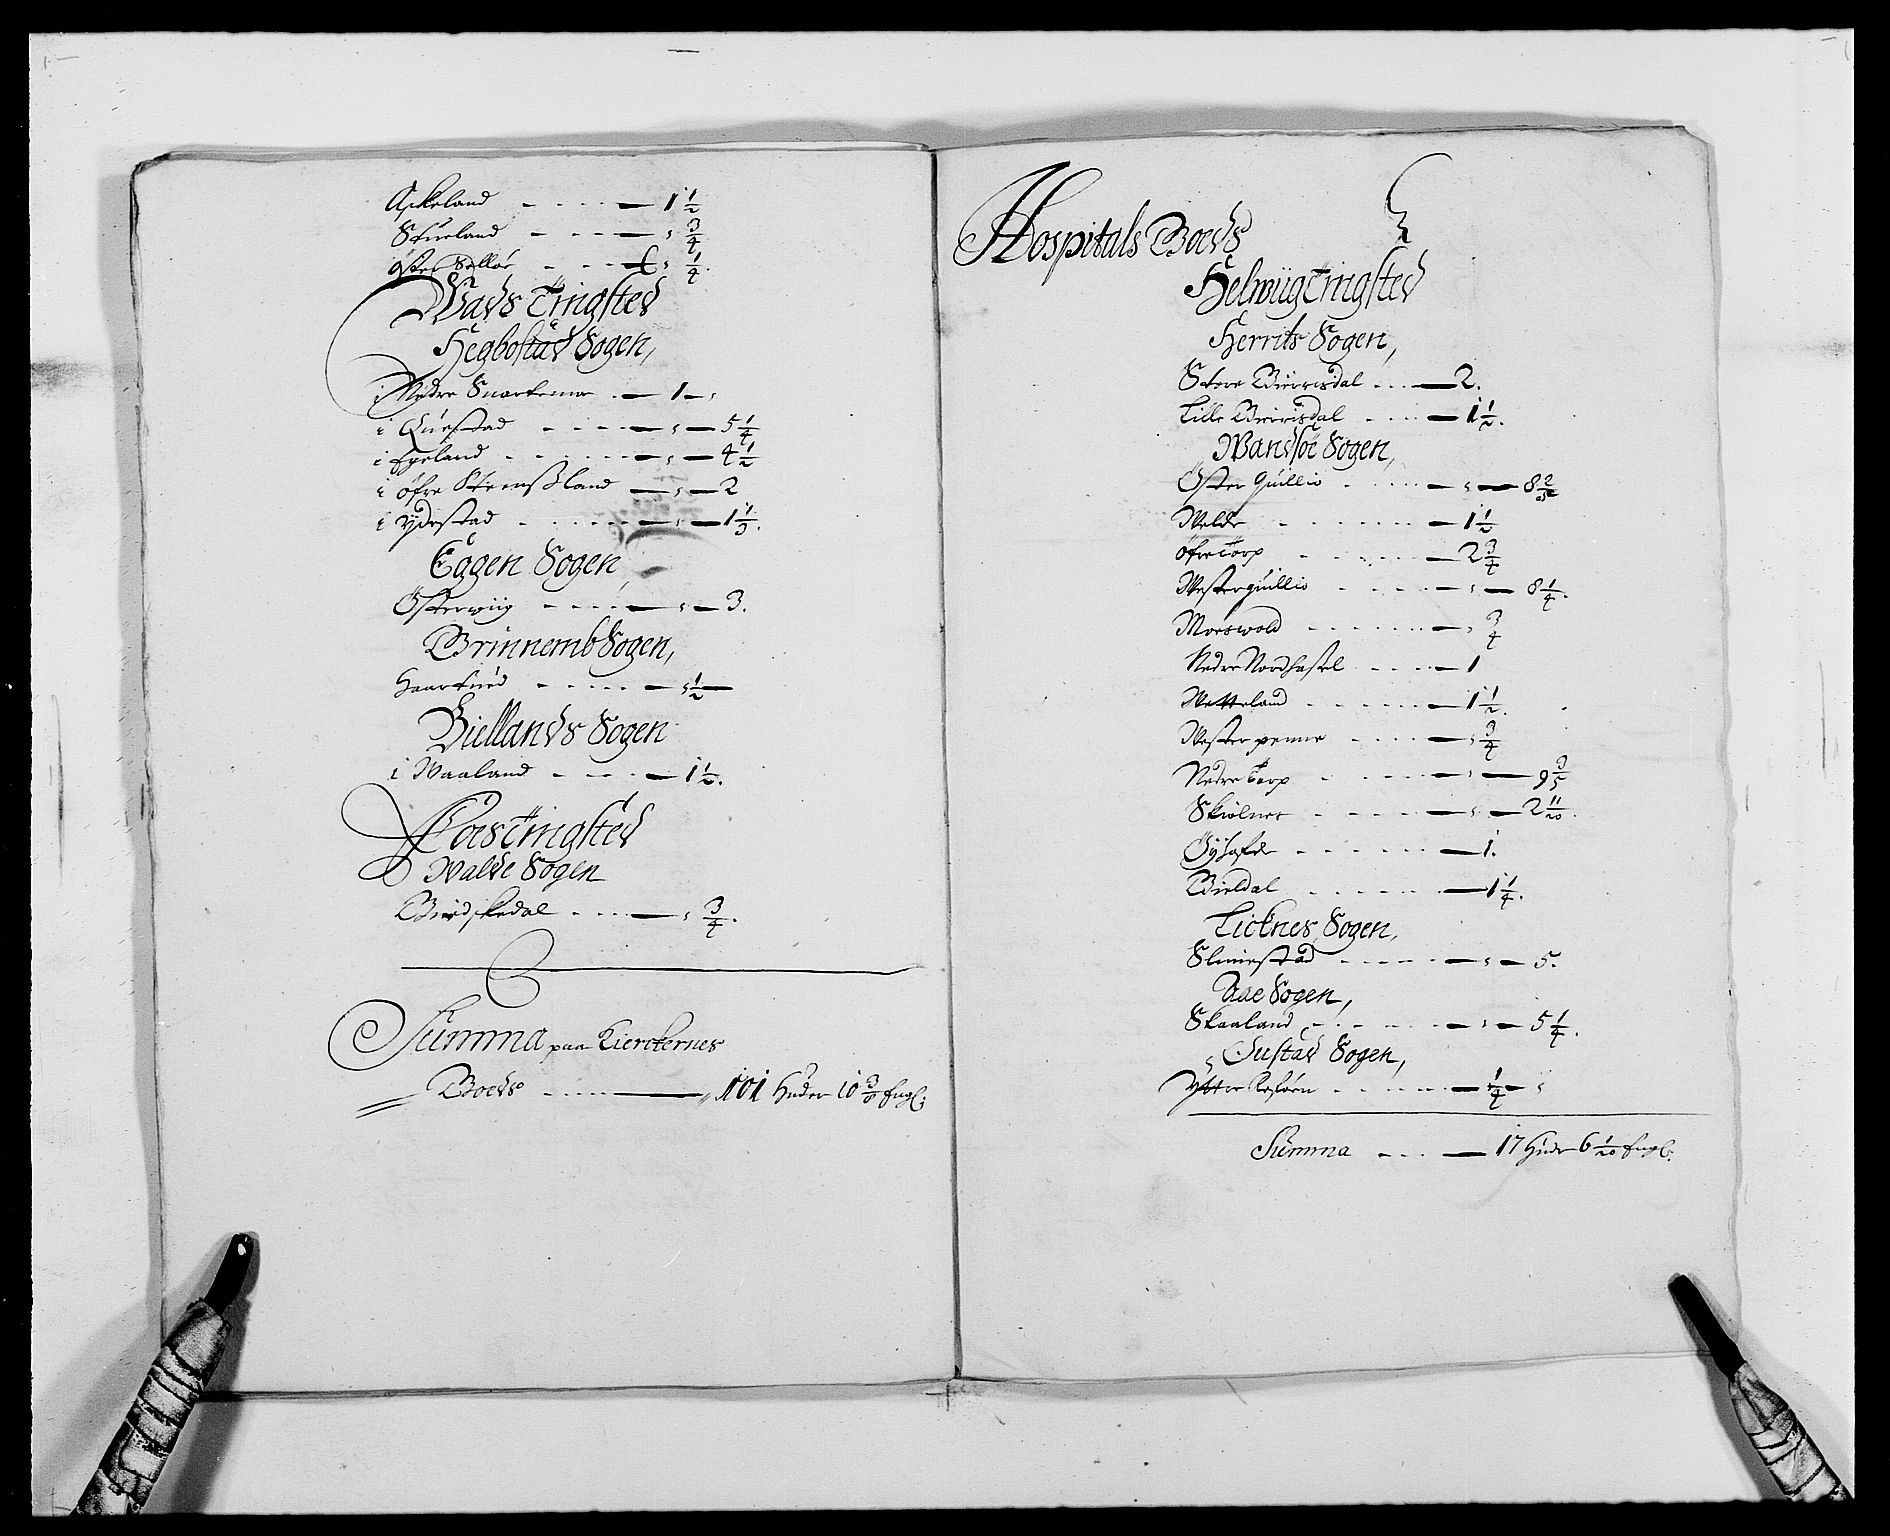 Askeland - - - - — 1 1/2
Stueland - - - - — " 3/4
Øster Sellør - - - — " 1/4.
Bads Tingsted
Hegbostad Sogen,
i Nedre Snartemoe - — 1 — "
i Questad - - - - — " — 5 1/4
i Egeland - - - - — " — 4 1/2
i Øfre Steensland — " — 2
i ydestad - - - - — " — 1 1/3.
Eagen Sogen,
Østerwiig - - - - — " — 3.
Brinnemb Sogen,
Haartued - - - - — " 1/2 —
Biellands Sogen
i Waaland - - - - — 1 1/2.
Foes Tingsted
Walde Sogen
Biirdskedal - - - — " 3/4.
Summa paa Kierckernes
Boeds - - - - — 101 Huder 10 3/10 Engl:
Hospitals Boeds
Helwiig Tingsted
Herrits Sogen,
Store Birrisdal - - - — 2.
Lille Birrisdal - - - — 1 1/2.
Wandsøe Sogen,
Øster Quillio - - - - — " — 8 2/5
Melde - - - - — 1 1/2
Øfre Torp - - - - — 2 3/4
Westerquillio - - - - — " — 8 1/4.
Moeswold - - - - — " 3/4
Nedre Nordhassel - - - - — 1
Wetteland - - - - — 1 1/2.
Wester penne - - - - — " 3/4
Nedre Torp - - - - — " — 9 3/5
Skiolnes - - - - — " — 2 11/20.
Øyhofde - - - - — 1.
Bieldal - - - - — 1 1/4.
Licknes Sogen,
Slimestad - - - - — " — 5.
Aae Sogen,
Skaaland - - - - — " — 5 1/4.
Gustad Sogen,
Ytter - - - - — 1/4 — "
Summa - - - — 17 Hude 6 1/20 Engl: